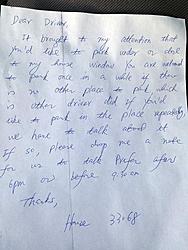 Dear Driver,
It brought to my attention that
you'd like to park under or close
to my house window. You are welcomed
to park once in a while if there
is no other place to park which
is other driver did if you'd
like to park in the place repeatedly,
we have to talk about it
If so, please drop me a note
for us to talk Prefer after
6pm or before 9:30 am
Thanks,
House 33-68